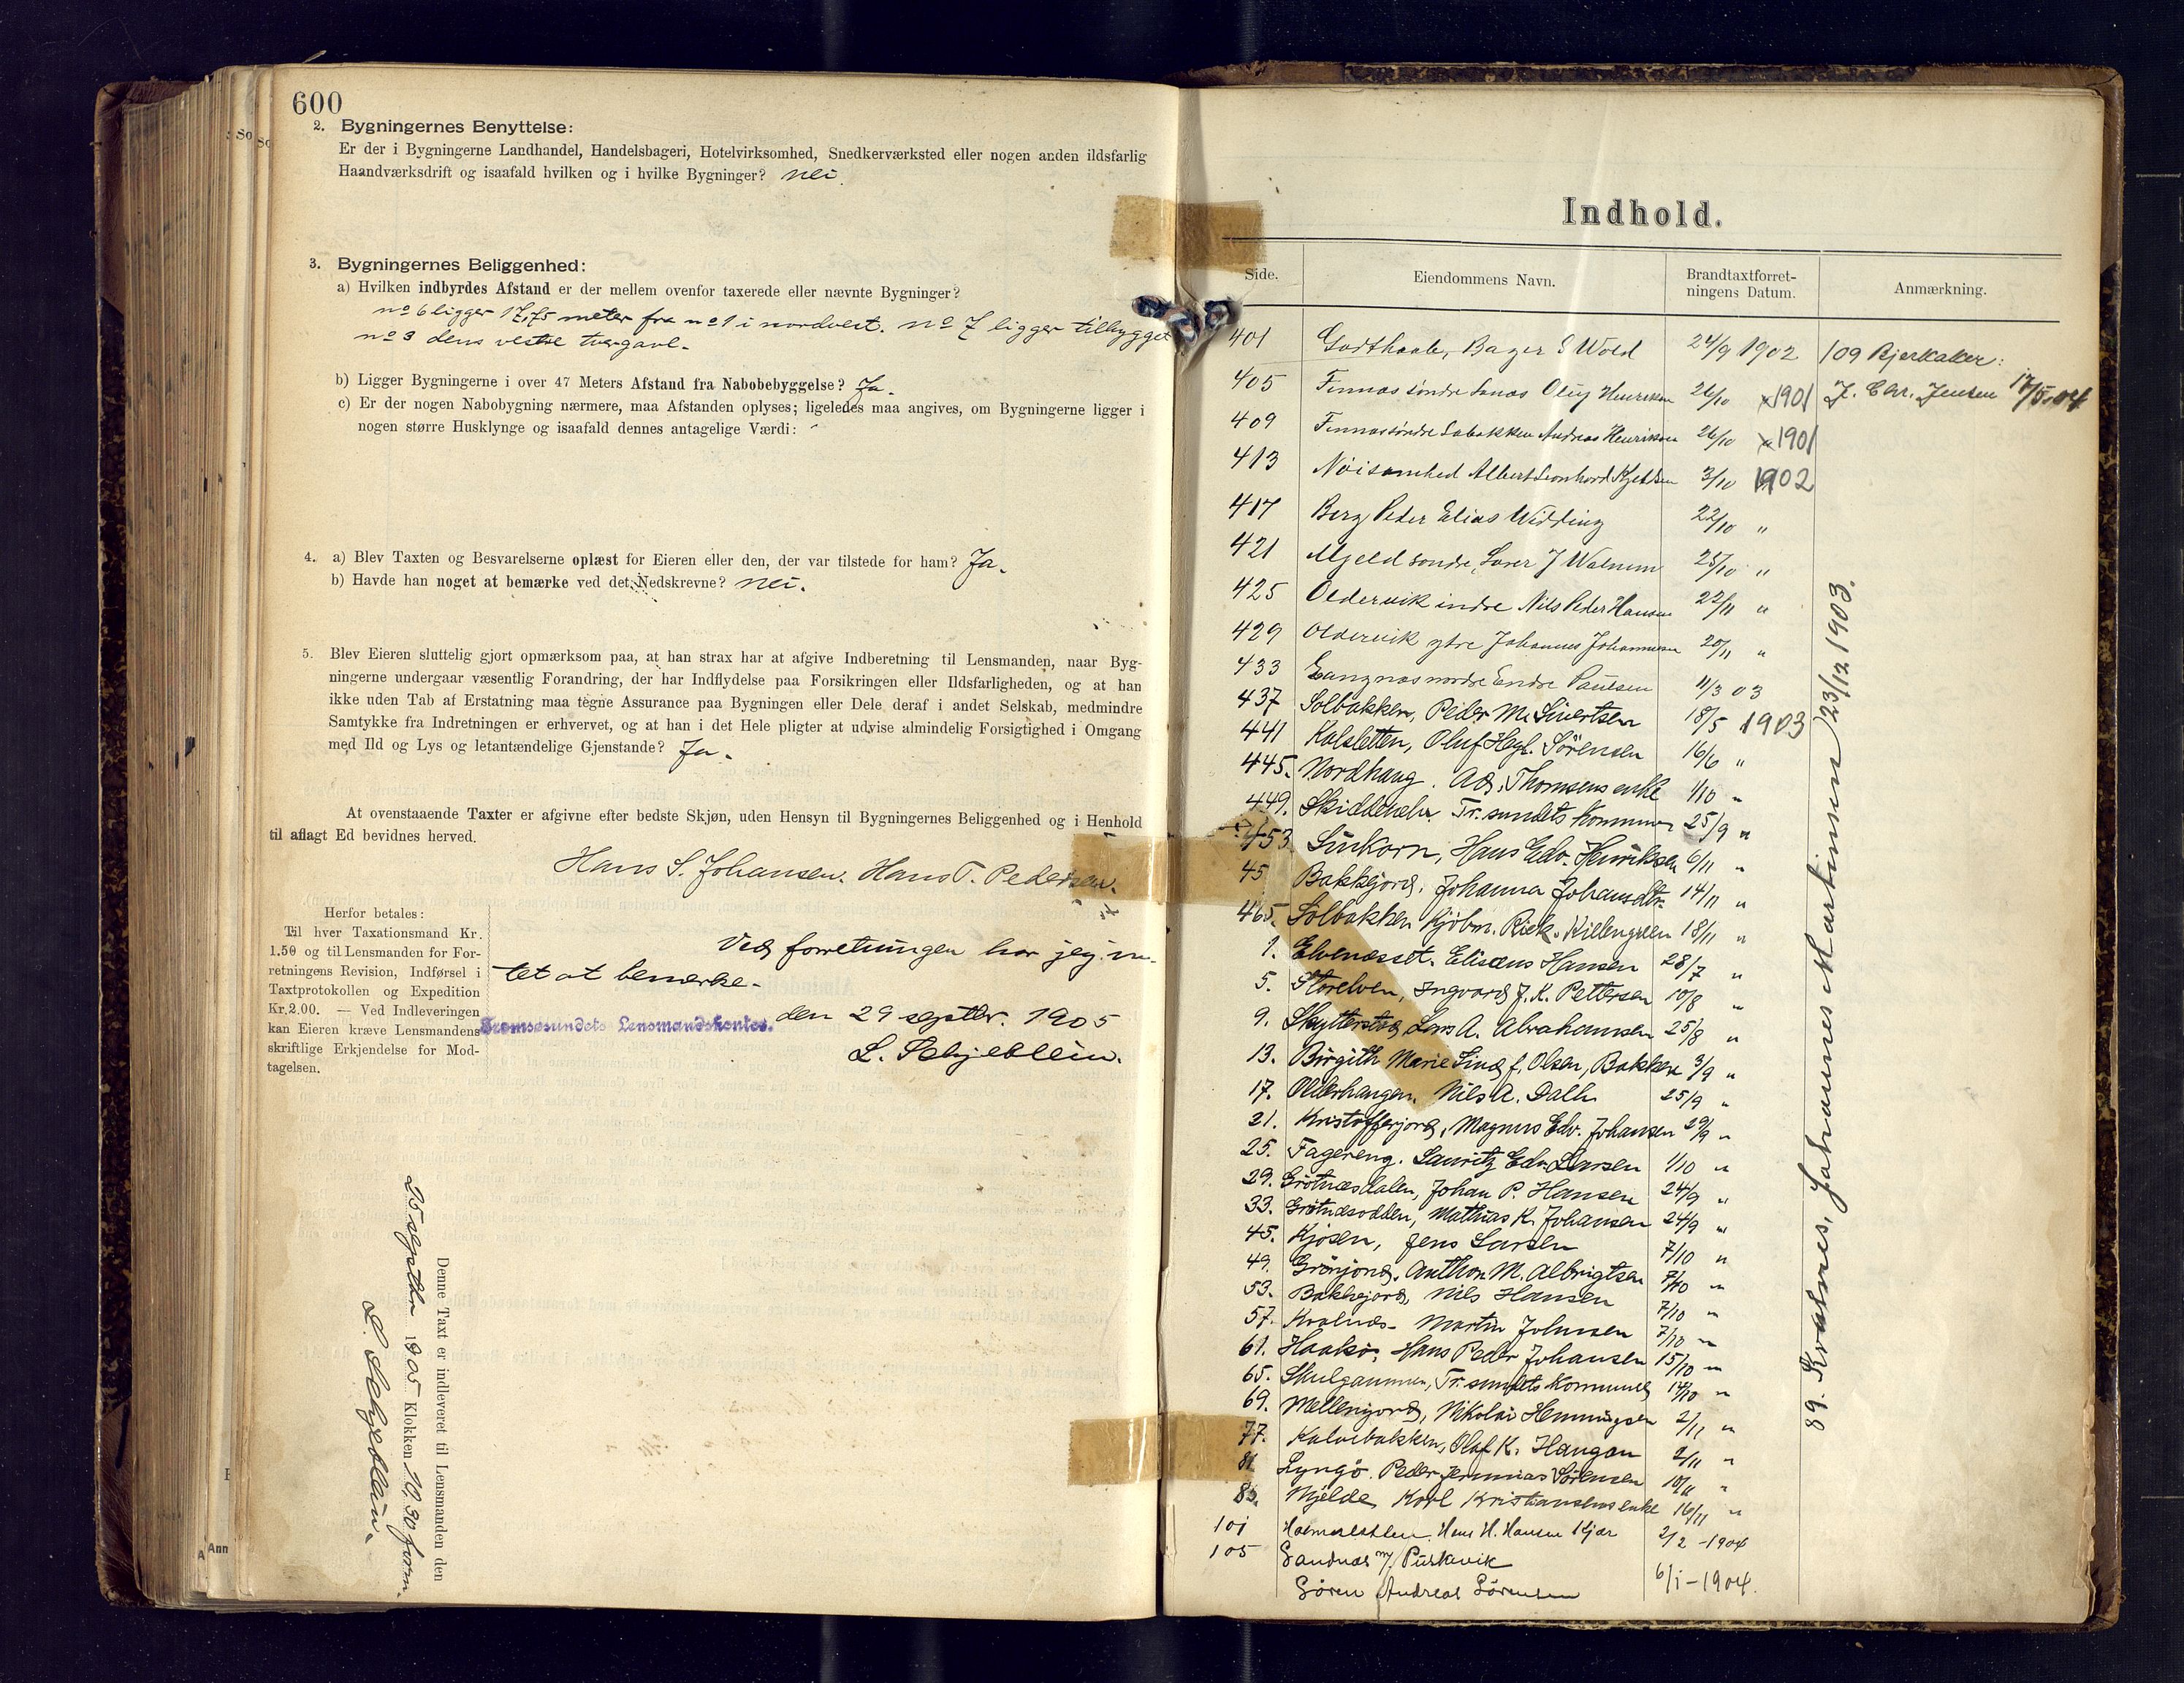 600
2. Bygningernes Benyttelse:
Er der i Bygningerne Landhandel, Handelsbageri, Hotelvirksomhed, Snedkerværksted eller nogen anden ildsfarlig
Haandværksdrift og isaafald hvilken og i hvilke Bygninger? nei.
3. Bygningernes Beliggenhed:
a) Hvilken indbyrdes Afstand er der mellem ovenfor taxerede eller nævnte Bygninger?
no 6 ligger 17,75 meter fra no 1 i nordvest. no 7 ligger tilbygget
no 3 dens vestre tvergavl.
b) Ligger Bygningerne i over 47 Meters Afstand fra Nabobebyggelse? Ja.
c) Er der nogen Nabobygning nærmere, maa Afstanden oplyses; ligeledes maa angives, om Bygningerne ligger i
nogen større Husklynge og isaafald dennes antagelige Værdi:
4. a) Blev Taxten og Besvarelserne oplæst for Eieren eller den, der var tilstede for ham? Ja.
b) Havde han noget at bemærke ved det Nedskrevne? nei.
5. Blev Eieren sluttelig gjort opmærksom paa, at han strax har at afgive Indberetning til Lensmanden, naar Byg-
ningerne undergaar væsentlig Forandring, der har Indflydelse paa Forsikringen eller Ildsfarligheden, og at han
ikke uden Tab af Erstatning maa tegne Assurance paa Bygningen eller Dele deraf i andet Selskab, medmindre
Samtykke fra Indretningen er erhvervet, og at han i det Hele pligter at udvise almindelig Forsigtighed i Omgang
med Ild og Lys og letantændelige Gjenstande? Ja.
At ovenstaaende Taxter er afgivne efter bedste Skjøn, uden Hensyn til Bygningernes Beliggenhed og i Henhold
til aflagt Ed bevidnes herved.
Hans S. Johansen. Hans T. Pedersen.
Herfor betales:
Til hver Taxationsmand Kr.
1.50 og til Lensmanden for For-
retningens Revision, Indførsel i
Taxtprotokollen og Expedition
Kr. 2.00. — Ved Indleveringen
kan Eieren kræve Lensmandens
skriftlige Erkjendelse for Mod-
tagelsen.
Ved forretningen har jeg in-
tet at bemerke.
Tromsøsundets Lensmandskontor. den 29 septbr. 1905
L. Schjeblein.
Denne Taxt er indleveret til Lensmanden den
25 septbr 1905 Klokken 10,30 form.
L. Schjeblein.
Indhold.
Side. Eiendommens Navn. Brandtaxtforret-
ningens Datum. Anmærkning.
401 Godthaab, Bager S Wold 24/9 1902 109 Bjerkaker:
405 Finnæs søndre Oluf Henriksen 26/10 1901 J. Chr. Jensen 17/5.04
409 Finnæs søndre Andreas Henriksen 26/10 1901
413 Nöisomhed Albert Leonhard 3/10 1902
417 Berg Peder Elias Widding 22/10 "
421 Mjeld søndre, J Walnum 25/10 "
425 Oldervik indre Nils Peder Hansen 22/11 "
429 Oldervik ytre Johannes Johannesen 20/11 "
433 Langnæs nordre Endre Paulsen 11/3 03
437 Solbakken, Peder M. Sivertsen 18/5 1903
441 Kalsletten, Oluf Hegl. Sörensen 16/6 "
445. Nordhaug. Ad. Thomsens enke 1/10 "
449. Tr.sundets Kommune 25/9 "
453 Hans Edv. Henriksen 6/11 "
45 Bakkejord, Johanna Johansdtr. 14/11 "
465. Solbakken Kjöbm. Rick. Killengreen 18/11 "
1. Elvenæsset. Elisæus Hansen 28/7 "
5. Storelven, Ingvard J. K. Pettersen 10/8 "
9. Skytterstad, Lars A. Abrahamsen 25/8 "
13. Birgith Marie Lind f. Olsen, Bakken 3/9 "
17. Olderhaugen, Nils A. Dalh 25/9 "
21. Kristofferjord, Magnus Edv. Johansen 29/9 "
25. Fagereng. Lauritz Edv. Larsen 1/10 "
29. Grötnæsdalen, Johan P. Hansen 24/9 "
33. Grötnæsodden, Mathias K. Johansen 24/9 "
45. Kjosen, Jens Larsen 7/10 "
49. Grönjord. Anthon M. Albrigtsen 7/10 "
53. Bakkejord, Nils Hansen 7/10 "
57. Kvalnæs- Martin Johnsen 7/10 "
61. Haakö, Hans Peder Johansen 15/10 "
65. Skulgammen, Tr.sundets Kommune 14/10 "
69. Mellemjord, Nikolai Henningsen 2/11 "
77. Kalvebakken, Olaf K. Haugan 2/11 "
81 Lyngö. Peder Jeremias Sörensen 10/11 "
85. Mjelde Karl Kristiansens enke 16/11 "
101 Hans H. Hansen Kjær 2/2 -1904
105 Sandnæs m/ Purkevik
Sören Andreas Sörensen 6/1-1904.
89. Kvalnæs, Johannes Martinsen 23/12 1903.